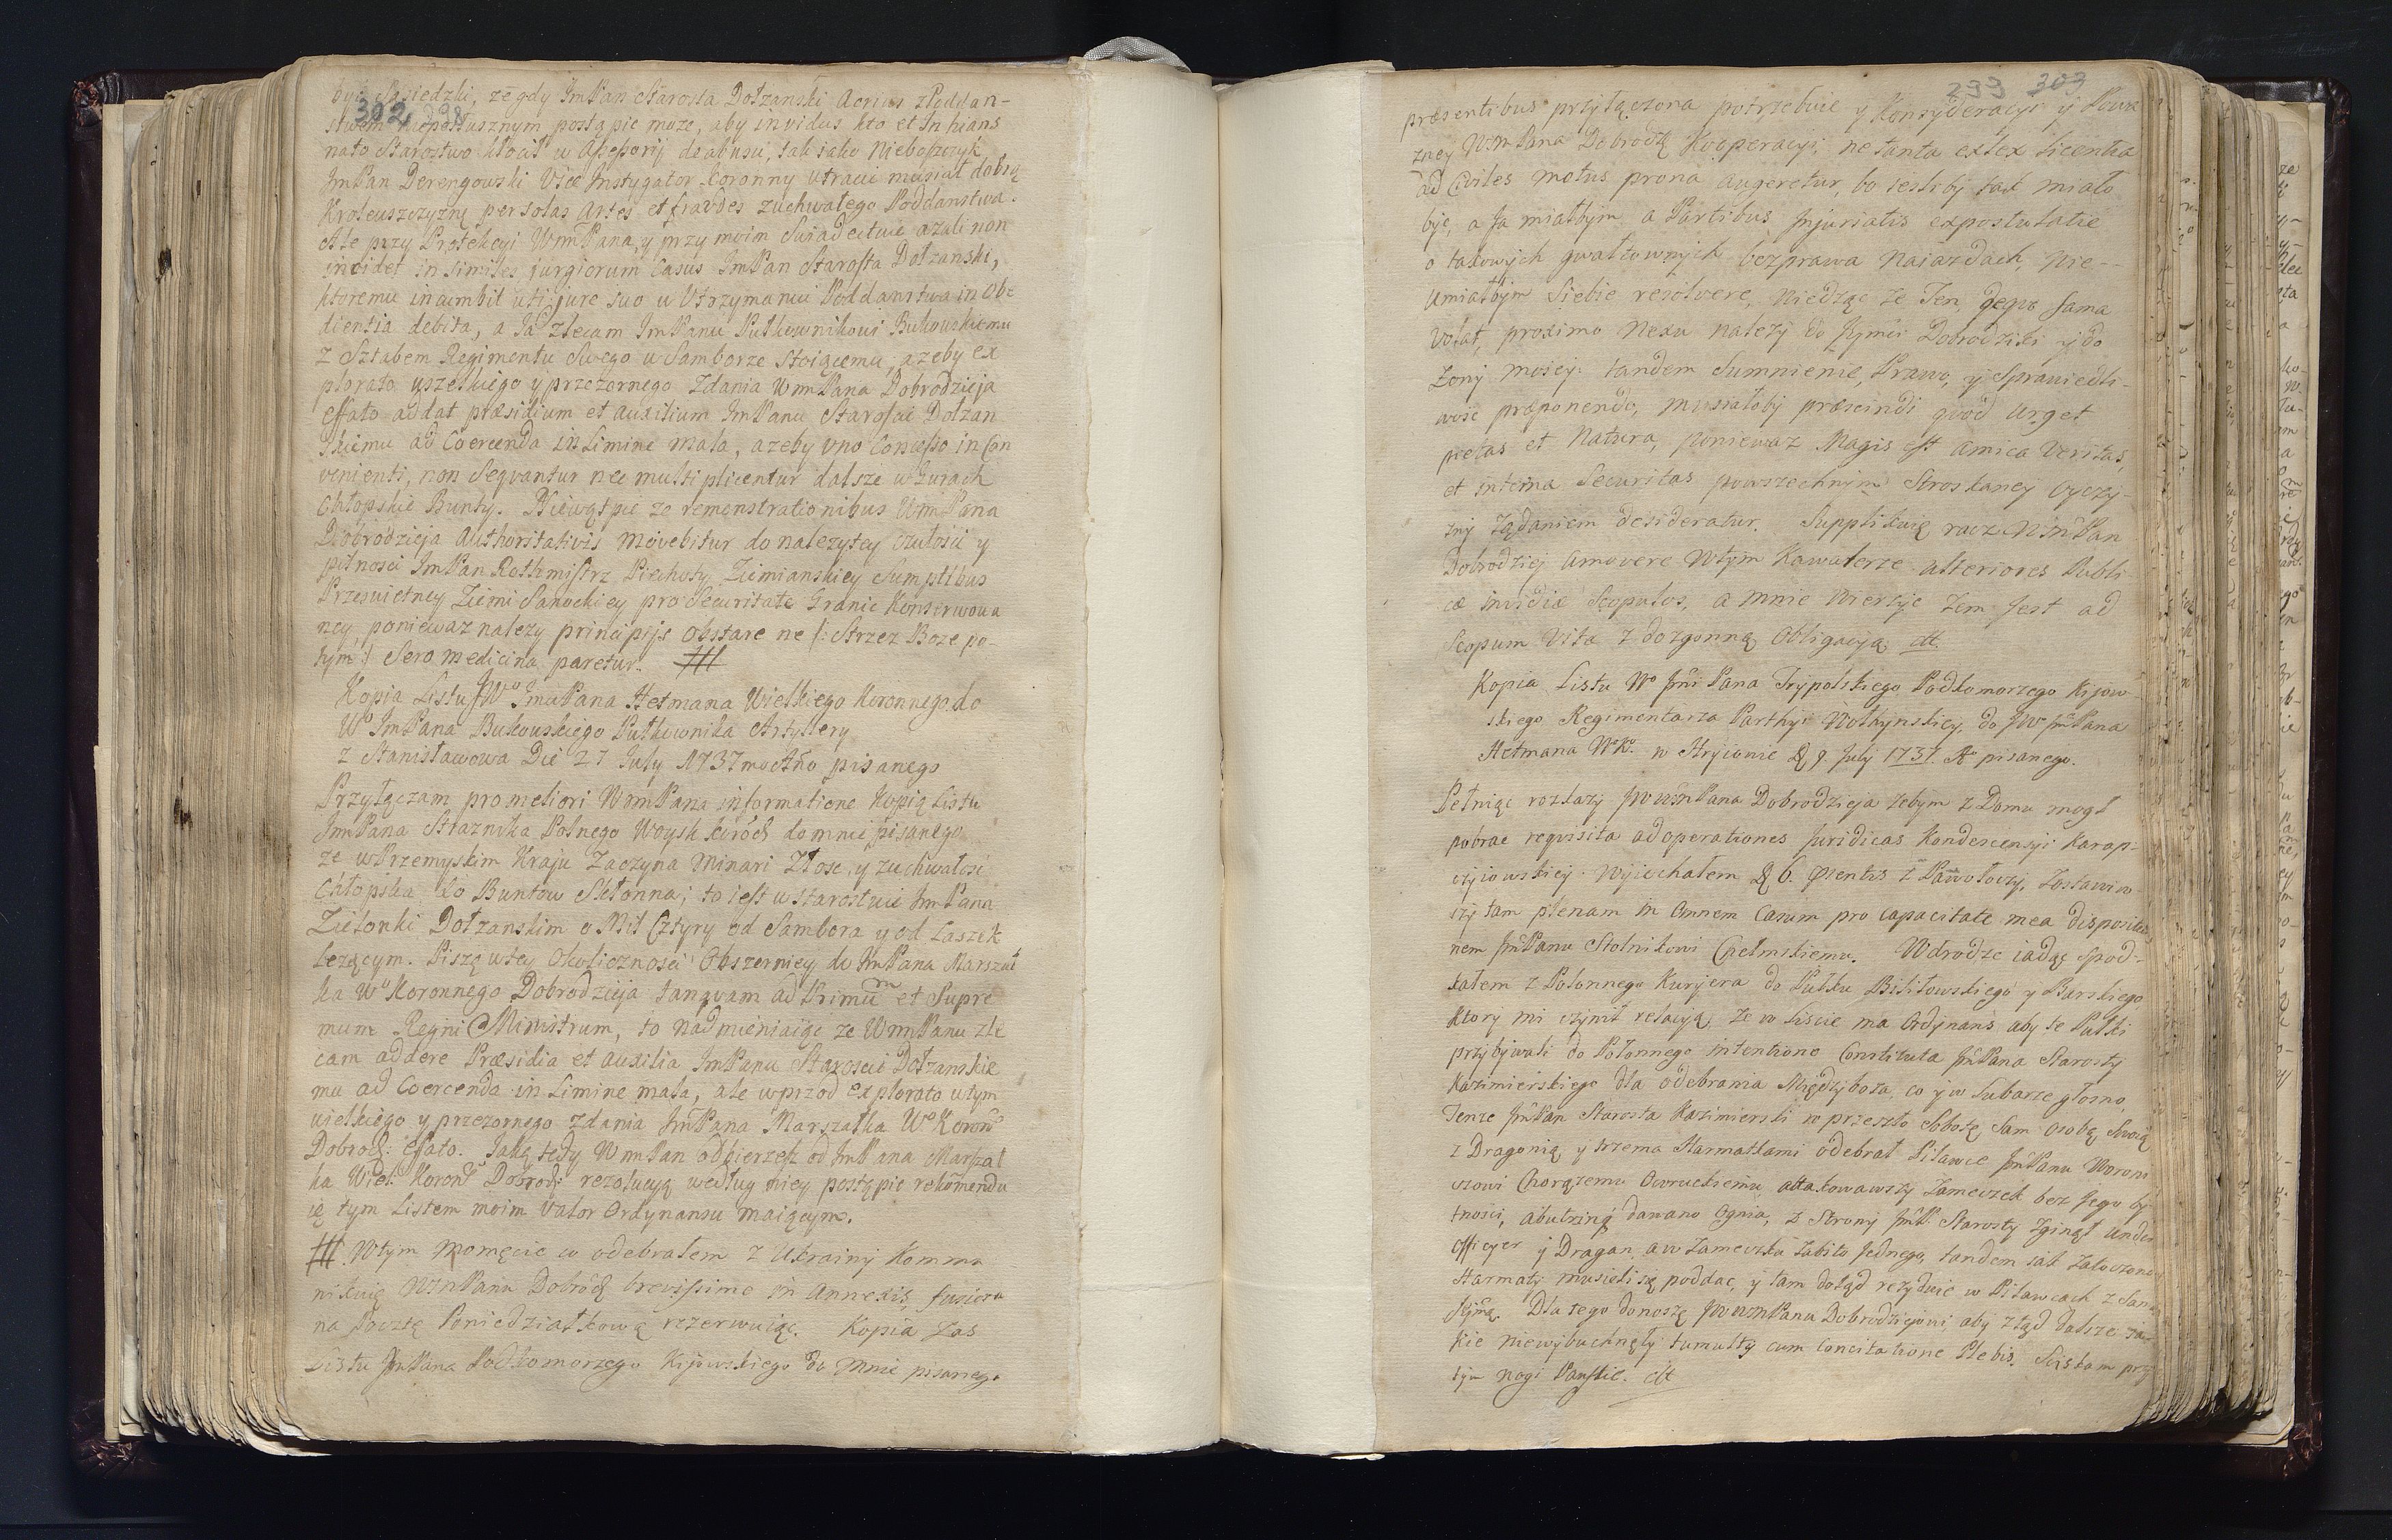 302 298
być Sąsiedzki, ze gdy ImPan Starosta Dołzanski Acrius z Poddan-
stwem nieposłusznym postąpić moze, aby invidus kto et Inhians
na to Starostwo kłocił w Assessorij de abusu, tak iako Nieboszczyk
ImPan Derengowski Vice Instygator Koronny utracić musiał dobrą
Kroleuszczyznę per solas Artes et fraudes zuchwałego Poddanstwa.
Ale przy Protekcyi WmPana, y przy moim Swiadectwie azali non
incidet in similes jurgiorum Casus ImPan Starosta Dołzanski,
ktoremu incumbit uti jure suo w Utrzymaniu Poddanstwa in Obe
dientia debita, a Ja zlecam ImPanu Pułkownikowi Bukowskiemu
z Sztabem Regimentu Swego w Samborze Stoiącemu, azeby ex
plorato wszelkiego y przezornego Zdania WmPana Dobrodzieja
effato addat præsidium et auxilium ImPanu Staroście Dołzan
skiemu ad Coercenda in Limine mala, azeby uno Concesso in Con
venienti, non Seqvantur nec multiplicentur dalsze w Gurach
Chłopskie Bunty. Niewątpię ze remonstrationibus WmPana
Dobrodzieja Authoritativis movebitur do nalezytey czułości y
pilnosci ImPan Rothmistrz Piechoty Ziemianskiey Sumptibus
Przeswietney Ziemi Sanockiey pro Securitate Granic Konserwowa
ney, poniewaz nalezy principijs obstare ne /: Strzez Boze po-
tym :/ Sero medicina paretur. ###
Kopia Listu JWo ImcPana Hetmana Wielkiego Koronnego do
Wo ImPana Bukowskiego Pułkownika Artyllery
z Stanisławowa Die 27 July 1737mo Ano pisanego
Przyłączam pro meliori WmPana informatione Kopią Listu
ImPana Straznika Polnego Woysk Kor. do mnie pisanego
ze w Przemyskim Kraju Zaczyna minari Złosc, y zuchwałosc
Chłopska do Buntow Skłonna; to iest w Starostwie ImPana
Zielonki Dołzanskim o Mil Cztyry od Sambora y od Laszek
lezącym. Piszę w tey Okolicznosci Obszerniey do ImPana Marszał
ka Wo Koronnego Dobrodzieja tanqvam ad Primum et Supre
mum Regni Ministrum, to nadmieniaiąc ze WmPanu zle
cam addere Præsidia et auxilia ImPanu Staroscie Dołzanskie
mu ad Coercenda in Limine mala, ale wprzod explorato w tym
wielkiego y przezornego zdania ImPana Marszałka Wo Koronno
Dobrodz: effato. Jaką tedy WmPan odbierzesz od ImPana Marszał
ka Wiel. Koronno Dobrodz: rezolucyą według niey postąpic rekomendu
ię tym Listem moim valor Ordynansu maiącym.
### W tym momęcie co odebrałem z Ukrainy Kommu
nikuię WmPanu Dobrodz brevissime in Annexis, fusiora
na Pocztę Poniedziałkową rezerwuiąc. Kopia zas
Listu ImPana Podkomorzego Kijowskiego do mnie pisanego
299 303
præsentibus przyłączona potrzebuie y Konsyderacyi y Powa
zney WmPana Dobrodz Kooperacyi, ne tanta exlex licentia
ad Civiles motus prona augeretur, bo iesliby tak miało
byc, a Ja miałbym a Partibus Injuriatis expostulatie
o takowych gwałtownych bezprawa Naiazdach, nie-
umiałbym Siebie resolvere, Niedząc ze Ten, de quo fama
volat, proximo Nexu nalezy do Jeymci Dobrodziki y do
Zony mojey: tandem Sumnienie, Prawo, y Sprawiedli-
wosc præponendo, musiałoby præscindi quod urget
pietas et Natura, poniewaz Magis est amica Veritas,
et interna Securitas powszechnym Stroskaney Oyczy-
zny ządaniem desideratur. Supplikuię racz WmPan
Dobrodziej amovere w tym Kawalerze alteriores Publi-
cæ invidiæ Scopulos, a mnie wierzyc zem jest ad
Scopum Vitæ z dozgonną Obligacyą etc.
Kopia Listu Wo ImciPana Trypolskiego Podkomorzego Kijow-
skiego Regimentarza Parthyi Wołhynskiey, do JWo ImPana
Hetmana WoKo. w Hryiowie D 9. July 1737. Ao pisanego.
Pełniąc rozkazy JWWmPana Dobrodzieja zebym z Domu mogł
pobrac reqvisita ad operationes Juridicas Kondescensyi Karap-
czyiowskiey. Wyiechałem D 6. præsentis z Pawołoczy, zostawiw-
szy tam plenam in omnem Casum pro capacitate mea dispositio-
nem ImPanu Stolnikowi Chełmskiemu. W drodze iadąc Spod-
kałem z Połonnego Kurjera do Pułku Biliłowskiego y Barskiego
ktory mi czynił relacyą, ze w Liście ma Ordynans aby te Pułki
przybywali do Połonnego intentione Constituta ImPana Starosty
Kazimierskiego dla odebrania Międzyboza, co y w Lubarze głosno.
Tenze ImPan Starosta Kazimierski w przeszłą Sobotę Sam osobą Swoią
z Dragonią y trzema Harmatkami odebrał Pilawce ImPanu Worono
wiczowi Chorązemu Owruckiemu, attakowawszy Zameczek bez Jego by
tnosci, a butrinq dawano Ognia, z Strony ImP. Starosty zginął Under
officyer y Dragan, a w Zameczku zabito Jednego, tandem iak zatoczono
Harmaty musieli się poddac, y tam dotąd rezyduie w Pilawcach z Samą
Jeymcią. Dla tego donoszę JWWmPanu Dobrodziejowi, aby ztąd dalsze ia-
kie niewybuchnęły tumulty cum Concitatione Plebis. Sciskam przy
tym nogi Panskie. etc